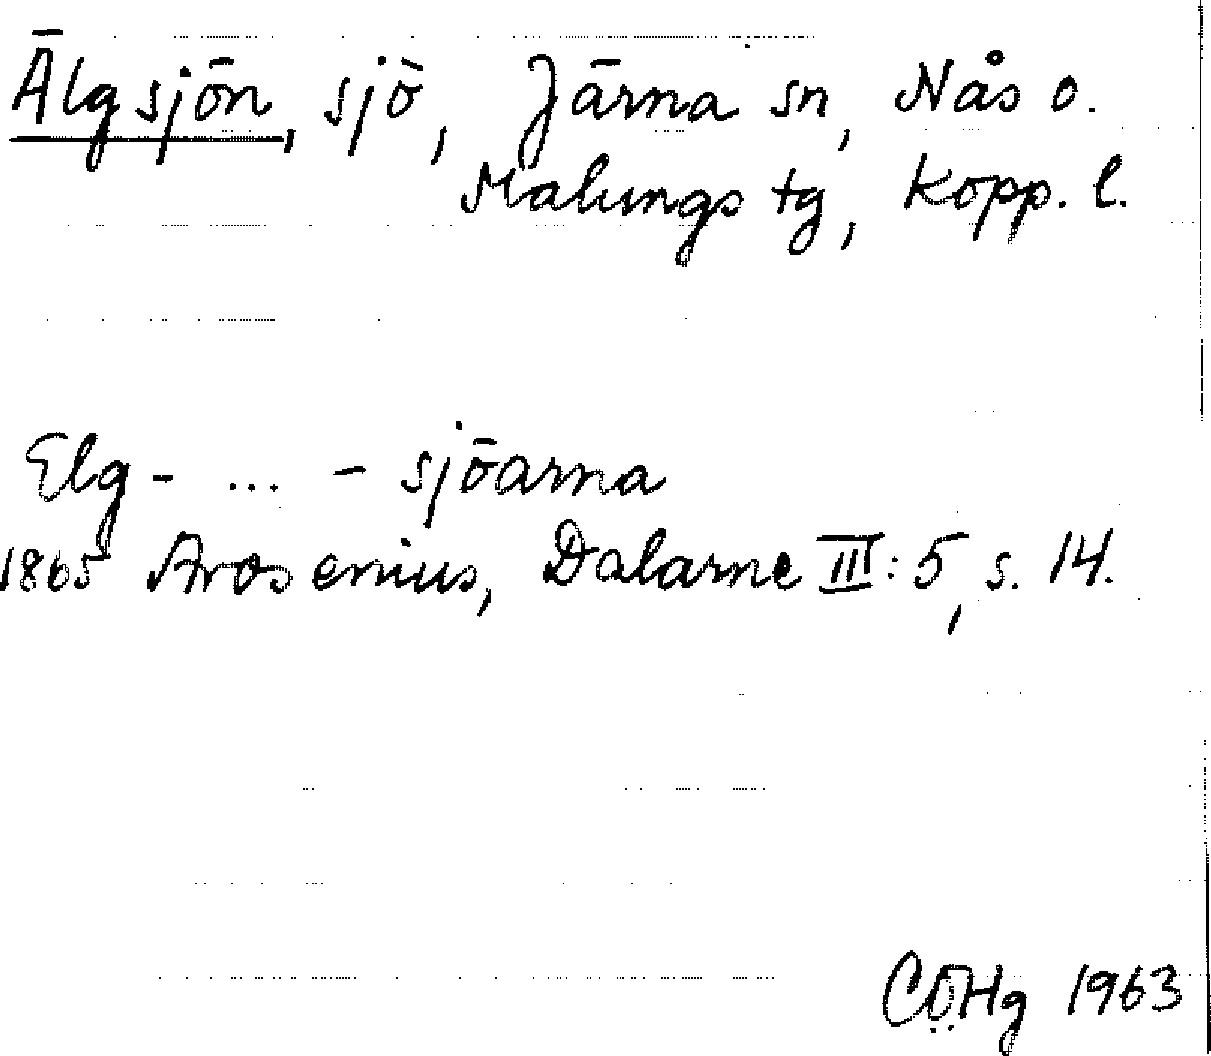 Älgsjön, sjö, Järna sn, Nås o.
Malungs tg, Kopp. l.
Elg- ... - sjöarna
1865 Arosenius, Dalarne III:5, s. 14.
CÖHg 1963